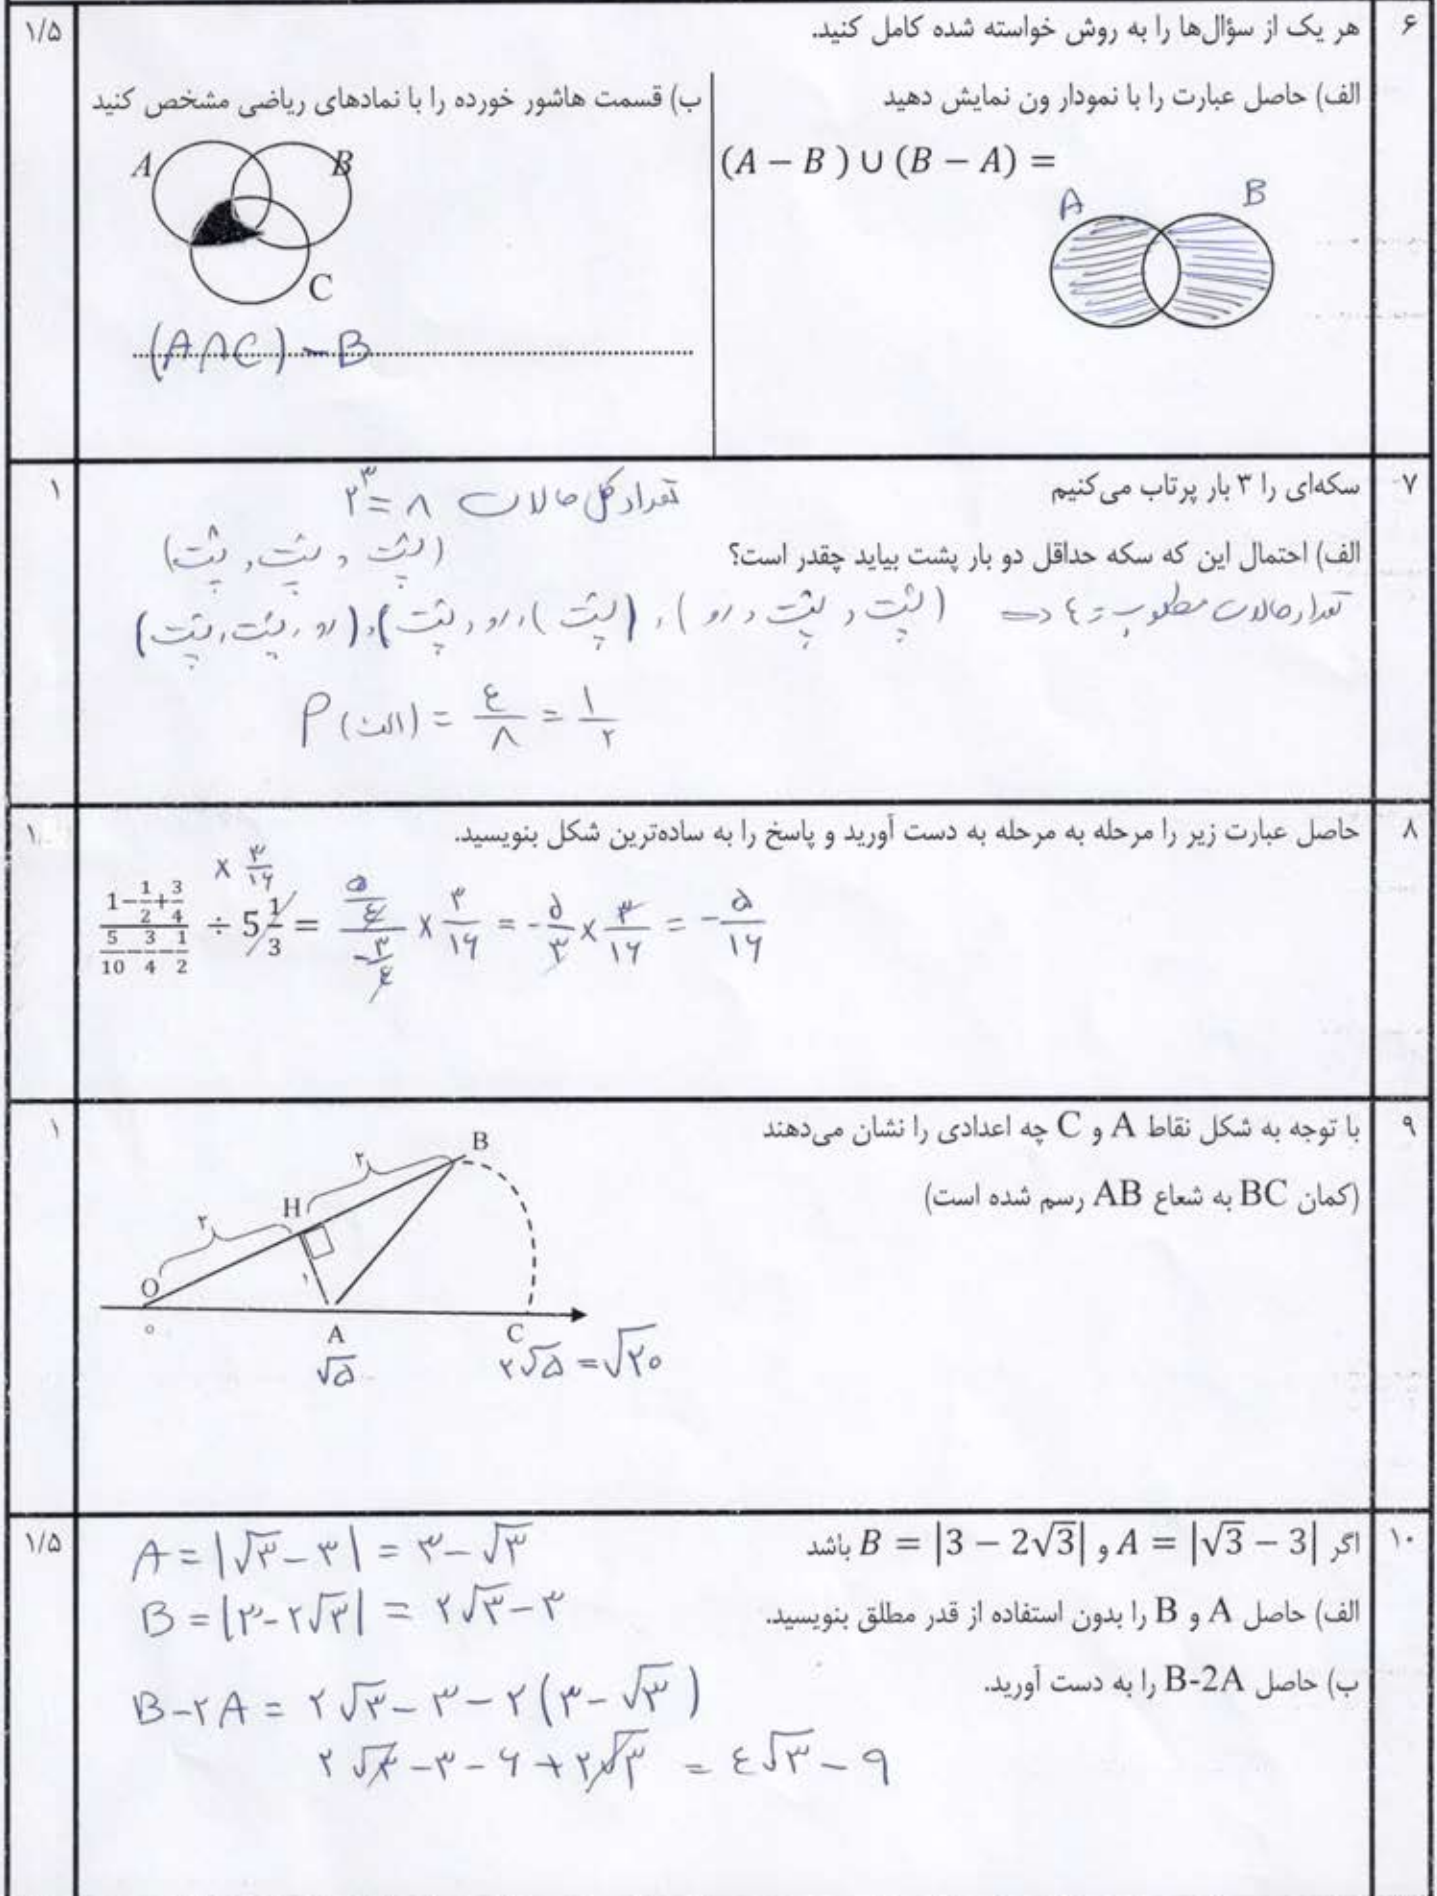 ۶ هر یک از سؤال‌ها را به روش خواسته شده کامل کنید. ۱/۵
الف) حاصل عبارت را با نمودار ون نمایش دهید
(A − B ) ∪ (B − A) =
A B
ب) قسمت هاشور خورده را با نمادهای ریاضی مشخص کنید
A B
C
(A∩C) − B
۷ سکه‌ای را ۳ بار پرتاب می‌کنیم ۱
تعداد کل حالات ۸ = ۲^۳
الف) احتمال این که سکه حداقل دو بار پشت بیاید چقدر است؟
(پشت , پشت , پشت)
تعداد حالات مطلوب = ۴ => (پشت , پشت , رو) , (پشت , رو , پشت) , (رو , پشت , پشت)
P(الف) = ۴/۸ = ۱/۲
۸ حاصل عبارت زیر را مرحله به مرحله به دست آورید و پاسخ را به ساده‌ترین شکل بنویسید. ۱
× ۳/۱۶
(1−1/2+3/4)/(5/10−3/4−1/2) ÷ 5 1/3 = (۵/۴)/(−۳/۴) × ۳/۱۶ = −۵/۳ × ۳/۱۶ = −۵/۱۶
۹ با توجه به شکل نقاط A و C چه اعدادی را نشان می‌دهند ۱
(کمان BC به شعاع AB رسم شده است)
B
۲
H
۲
O
۱
۰ A C
√۵ ۲√۵ = √۲۰
۱۰ اگر A = |√3 − 3| و B = |3 − 2√3| باشد ۱/۵
A = |√۳ − ۳| = ۳ − √۳
الف) حاصل A و B را بدون استفاده از قدر مطلق بنویسید.
B = |۳ − ۲√۳| = ۲√۳ − ۳
ب) حاصل B-2A را به دست آورید.
B − ۲A = ۲√۳ − ۳ − ۲(۳ − √۳)
۲√۳ − ۳ − ۶ + ۲√۳ = ۴√۳ − ۹